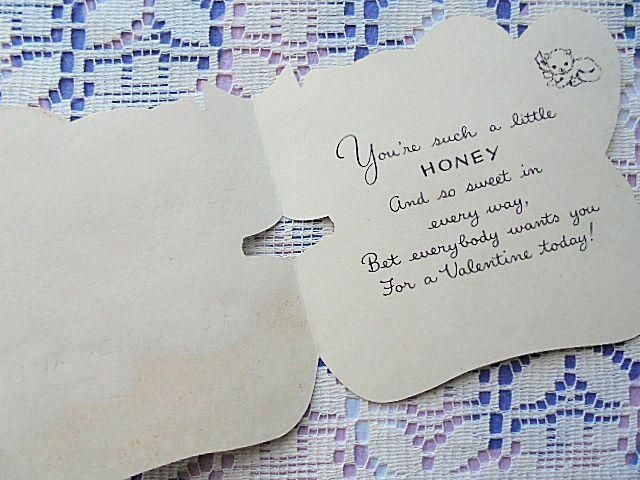 You're such a little
HONEY
And so sweet in
every way,
Bet everybody wants you
For a Valentine today!